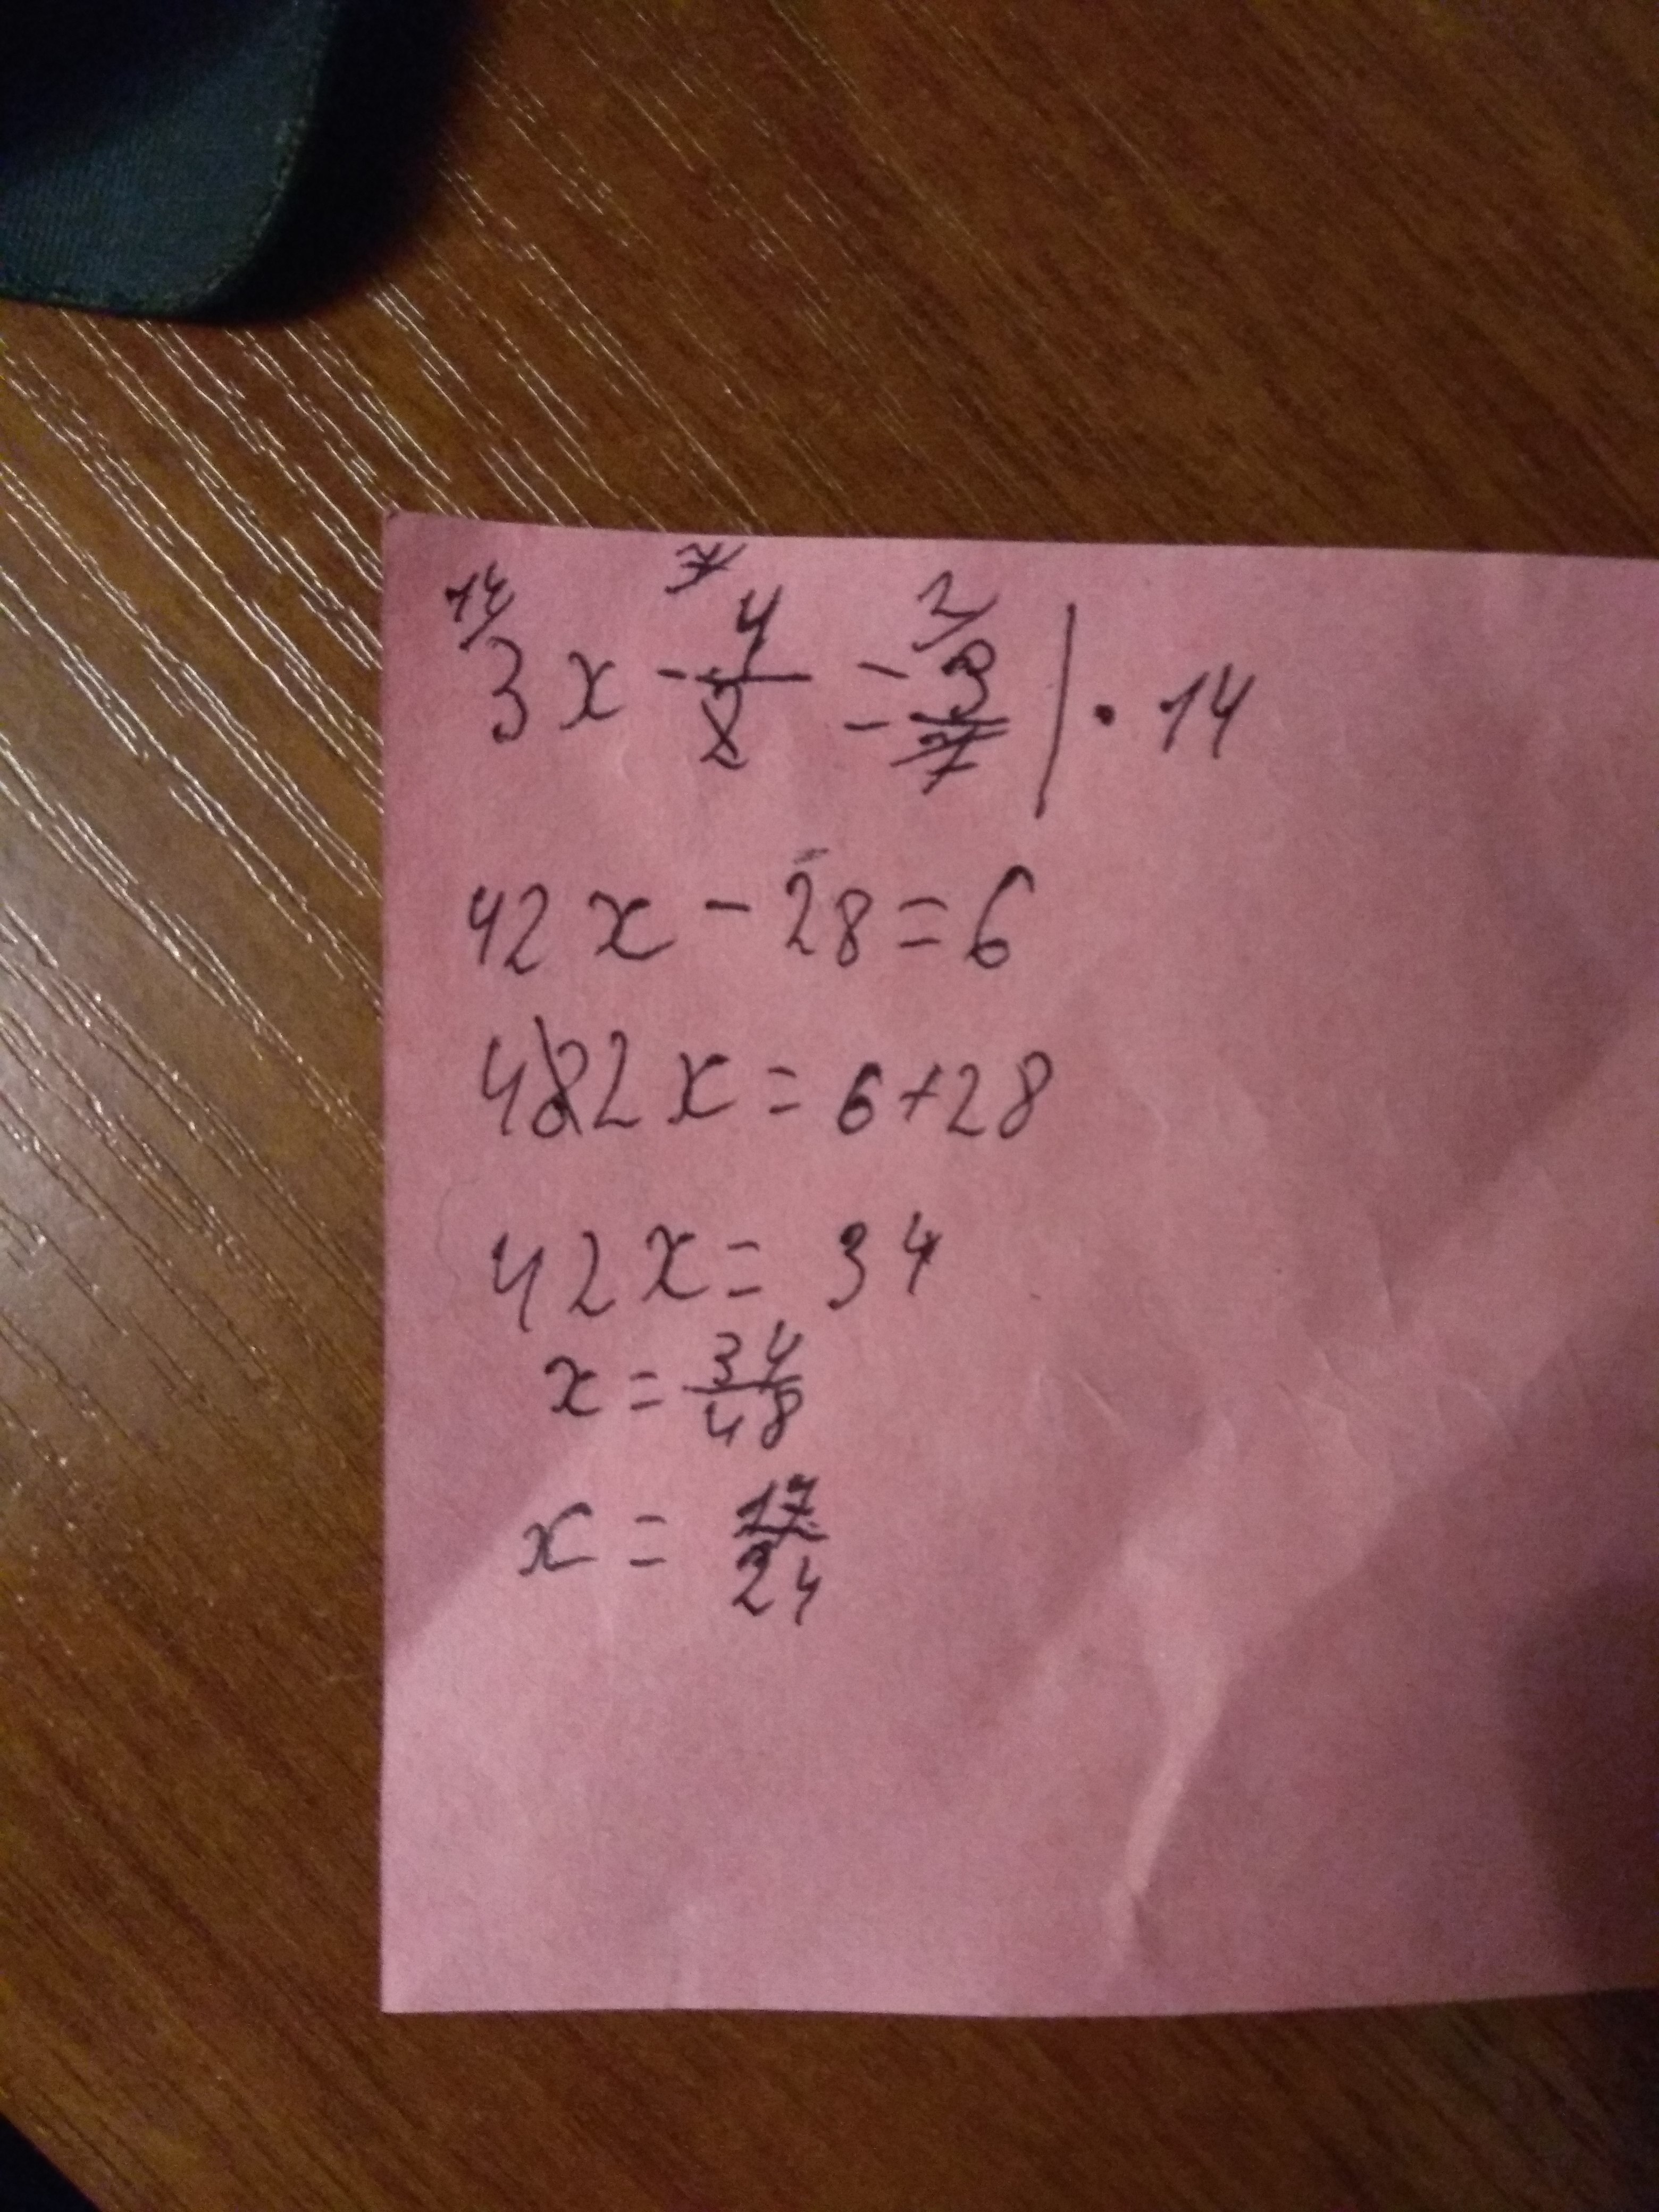 14 7 2
3x - 4/2 = 3/7 | · 14
42x - 28 = 6
482x = 6+28
42x = 34
x = 34/48
x = 17/24